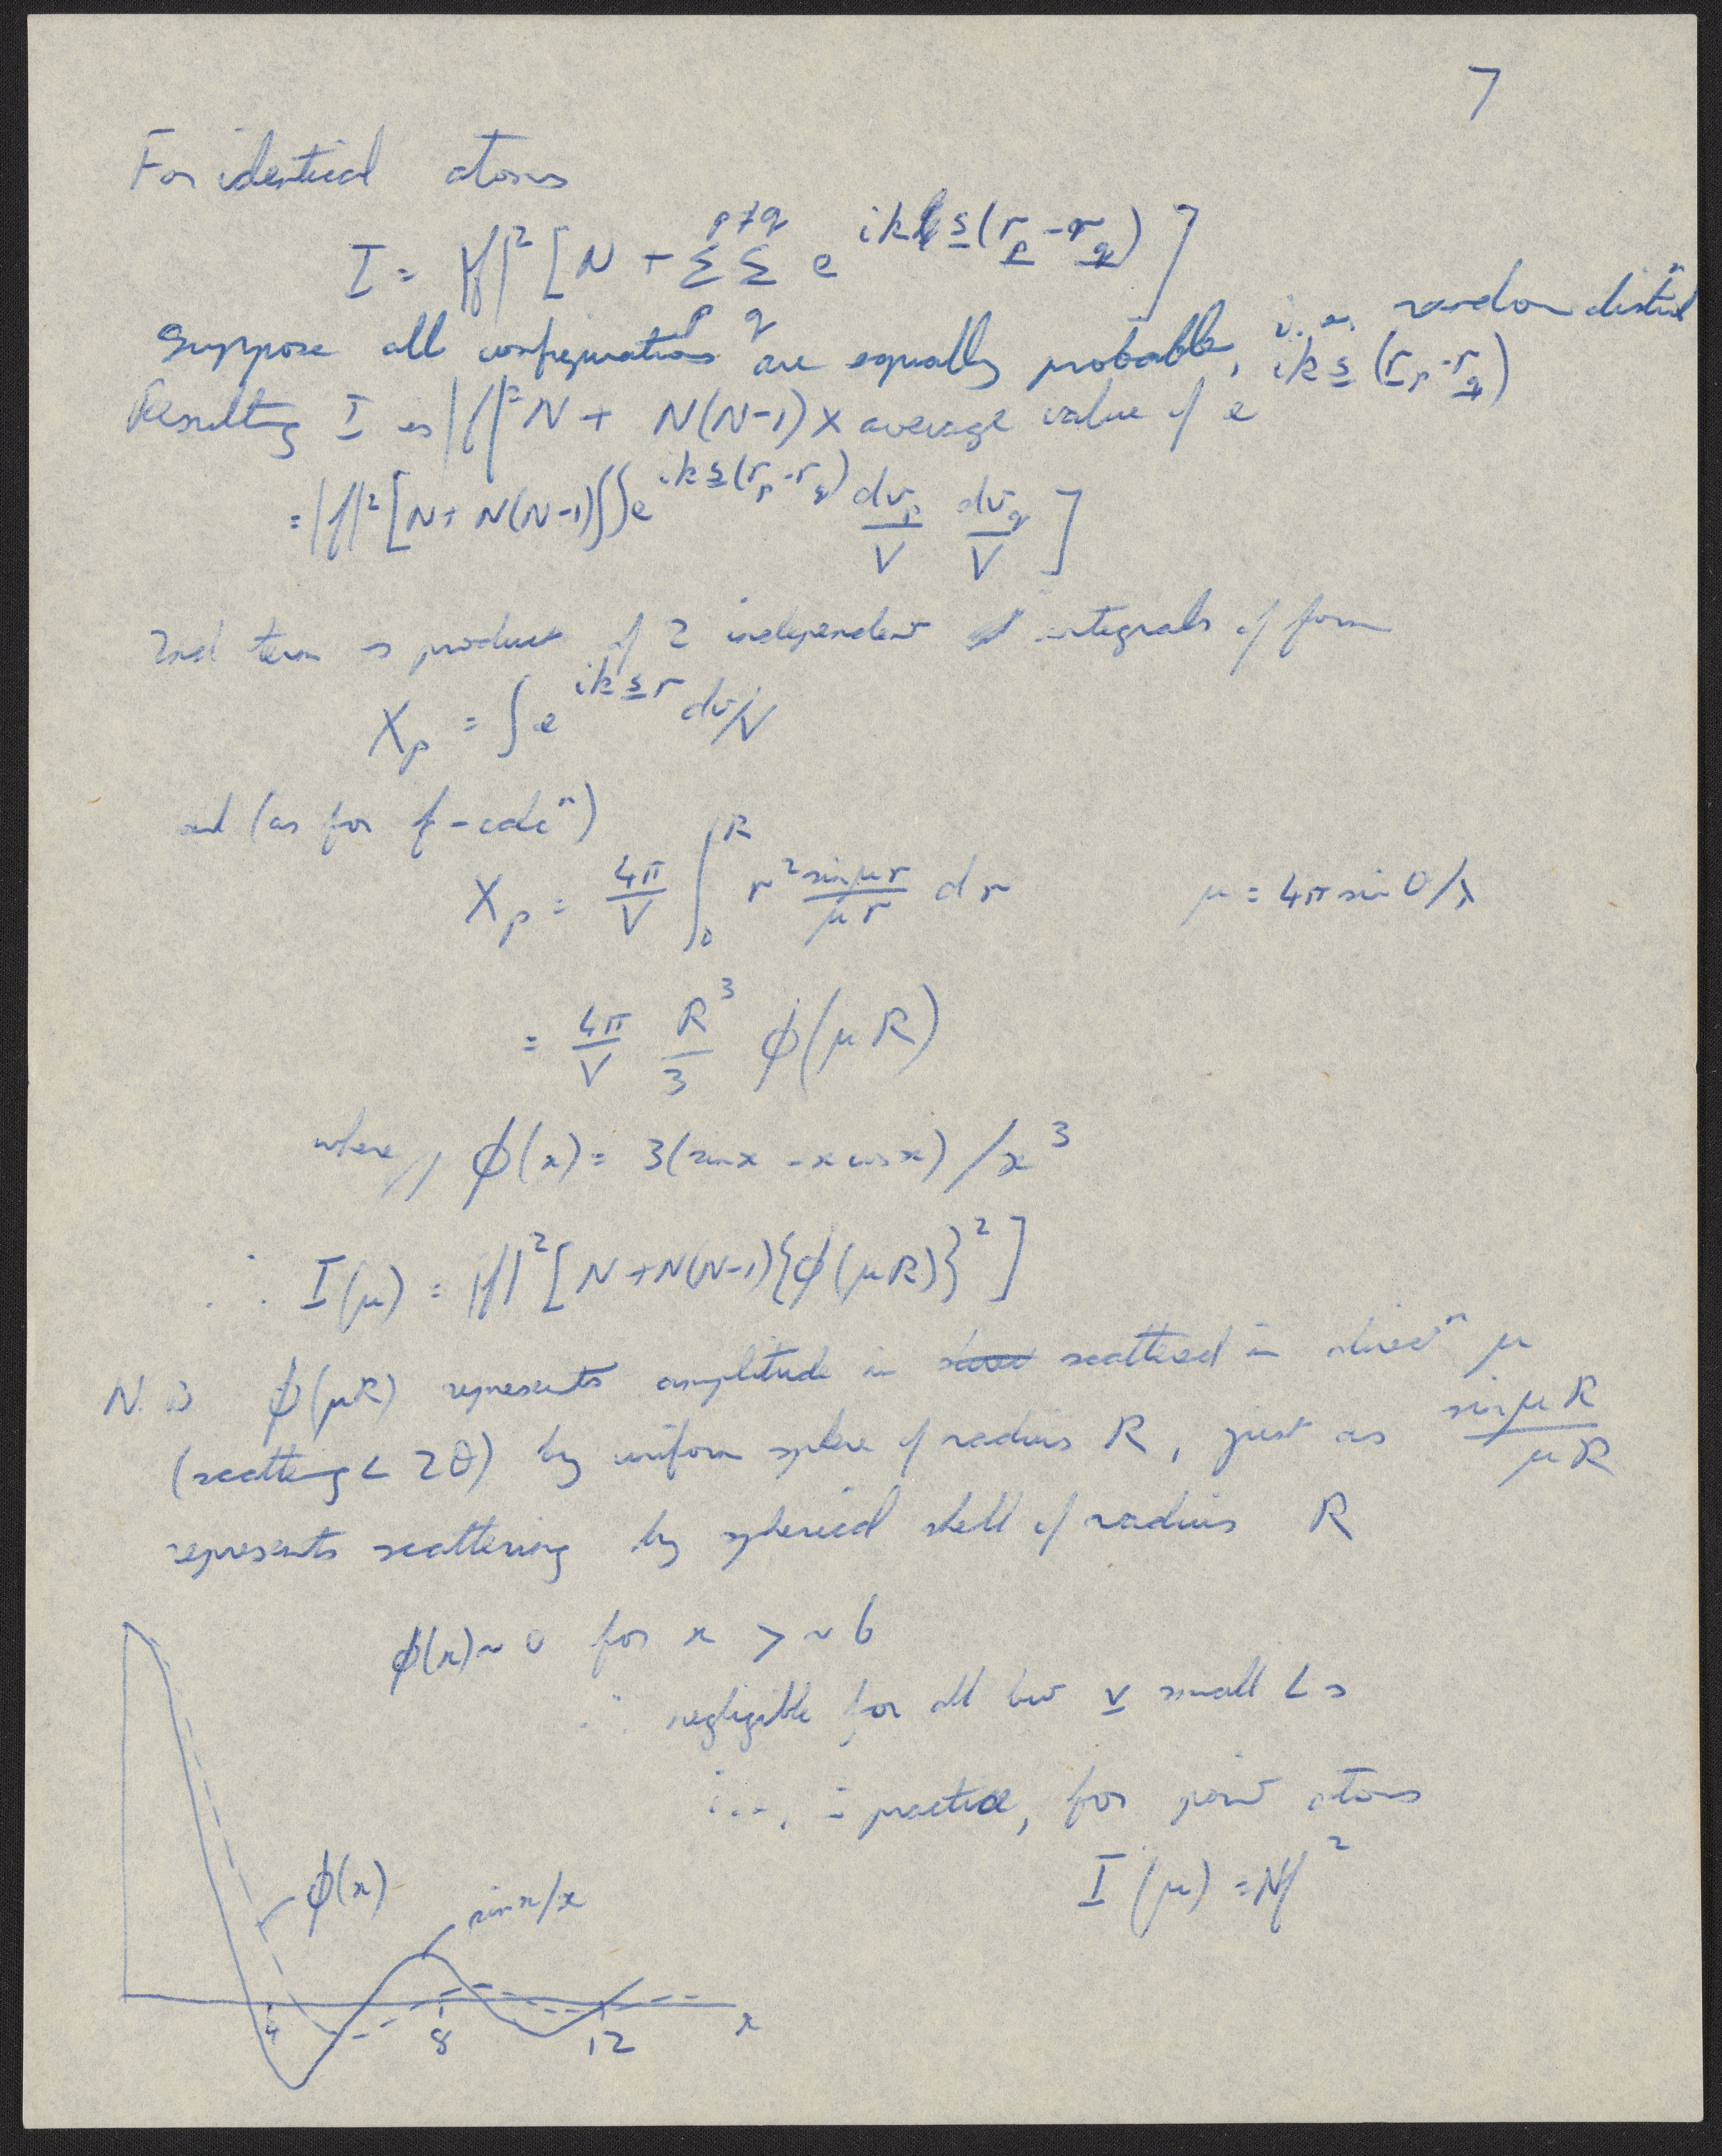 7
For identical atoms
I = |f|² [N + Σ_p Σ_q^{p≠q} e^{ik s(r_p - r_q)}]
Suppose all configurations are equally probable, i.e. random distribⁿ
Resulting I is |f|² N + N(N-1) x average value of e^{ik s(r_p - r_q)}
= |f|² [N + N(N-1) ∫∫ e^{ik s(r_p - r_q)} dv_p/V dv_q/V]
2nd term is product of 2 independent integrals of form
X_p = ∫ e^{ik s r} dv/V
and (as for f-calcⁿ)
X_p = 4π/V ∫_0^R r² sin μr/μr dr μ = 4π sin θ/λ
= 4π/V R³/3 φ(μR)
where, φ(x) = 3(sin x - x cos x)/x³
∴ I(μ) = |f|² [N + N(N-1){φ(μR)}²]
N.B φ(μR) represents amplitude in scattered in direcⁿ μ
(scattering ∠ 2θ) by uniform sphere of radius R, just as sin μR/μR
represents scattering by spherical shell of radius R
φ(x) ~ 0 for x > ~ 6
∴ negligible for all but v small ∠s
i.e., in practice, for point atoms
I(μ) = Nf²
φ(x)
sin x/x
4 8 12 x